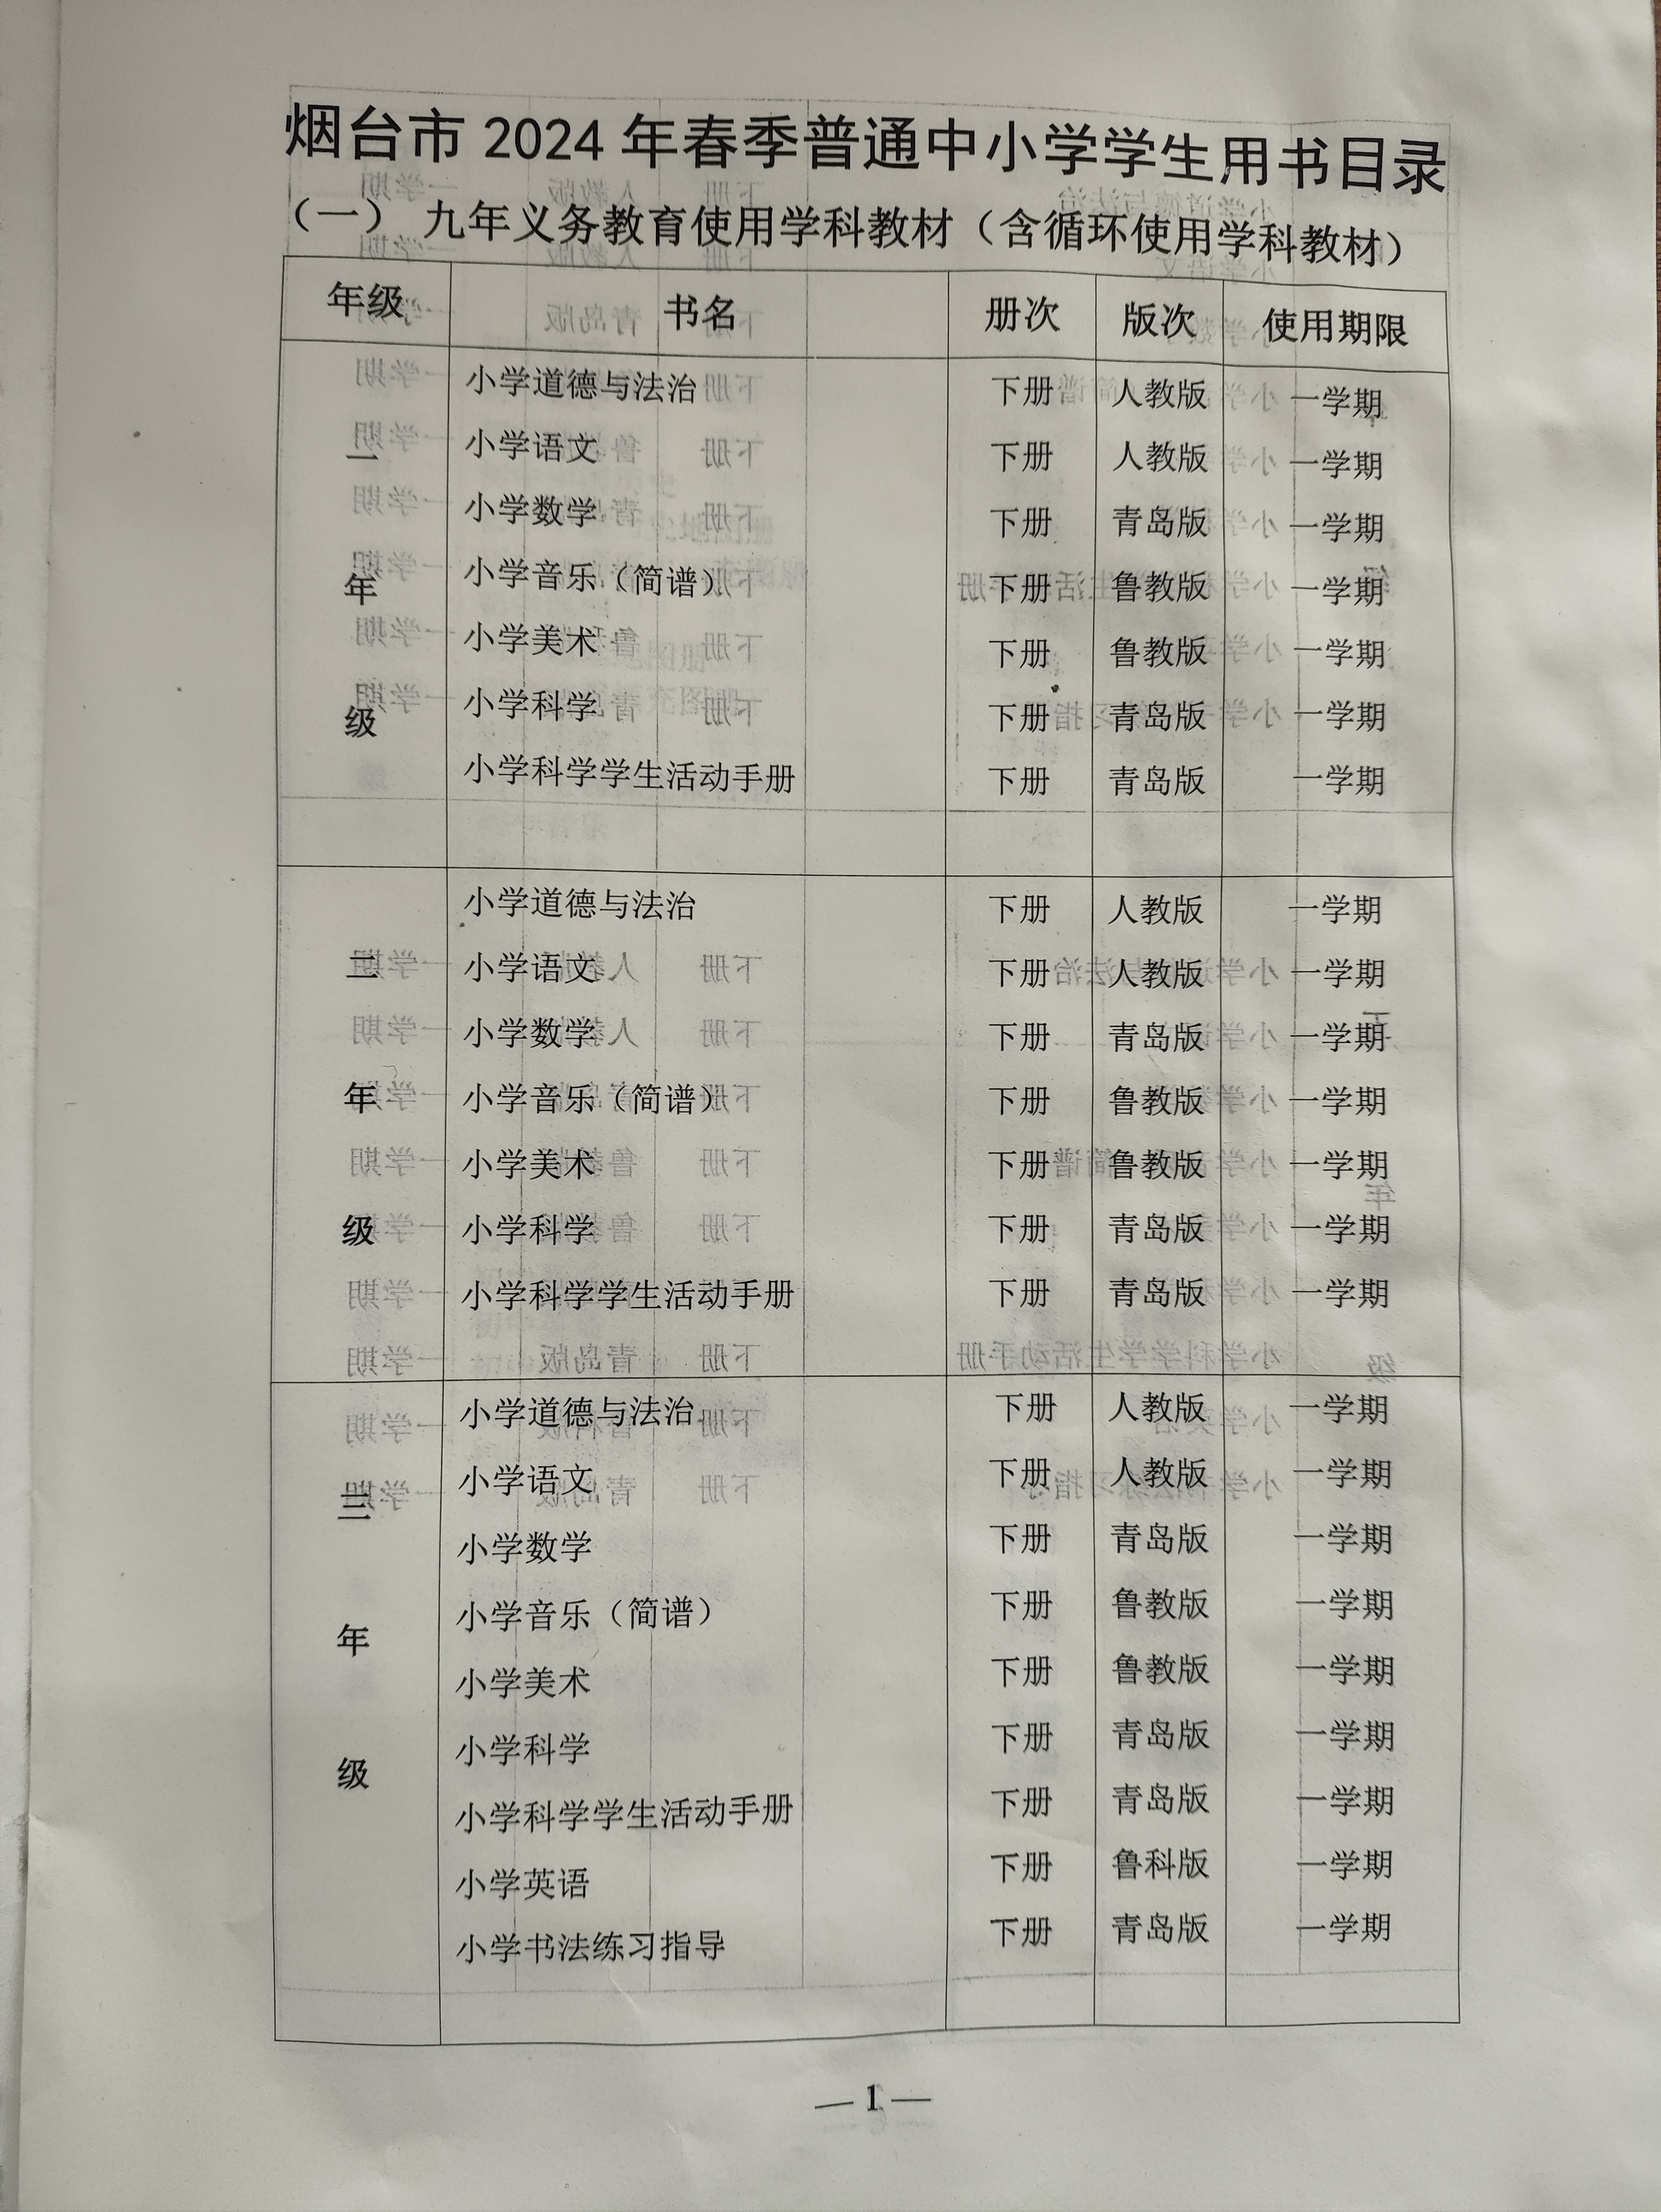 烟台市 2024 年春季普通中小学学生用书目录
（一） 九年义务教育使用学科教材（含循环使用学科教材）
年级 书名 册次 版次 使用期限
一年级
小学道德与法治 下册 人教版 一学期
小学语文 下册 人教版 一学期
小学数学 下册 青岛版 一学期
小学音乐（简谱） 下册 鲁教版 一学期
小学美术 下册 鲁教版 一学期
小学科学 下册 青岛版 一学期
小学科学学生活动手册 下册 青岛版 一学期
二年级
小学道德与法治 下册 人教版 一学期
小学语文 下册 人教版 一学期
小学数学 下册 青岛版 一学期
小学音乐（简谱） 下册 鲁教版 一学期
小学美术 下册 鲁教版 一学期
小学科学 下册 青岛版 一学期
小学科学学生活动手册 下册 青岛版 一学期
三年级
小学道德与法治 下册 人教版 一学期
小学语文 下册 人教版 一学期
小学数学 下册 青岛版 一学期
小学音乐（简谱） 下册 鲁教版 一学期
小学美术 下册 鲁教版 一学期
小学科学 下册 青岛版 一学期
小学科学学生活动手册 下册 青岛版 一学期
小学英语 下册 鲁科版 一学期
小学书法练习指导 下册 青岛版 一学期
— 1 —